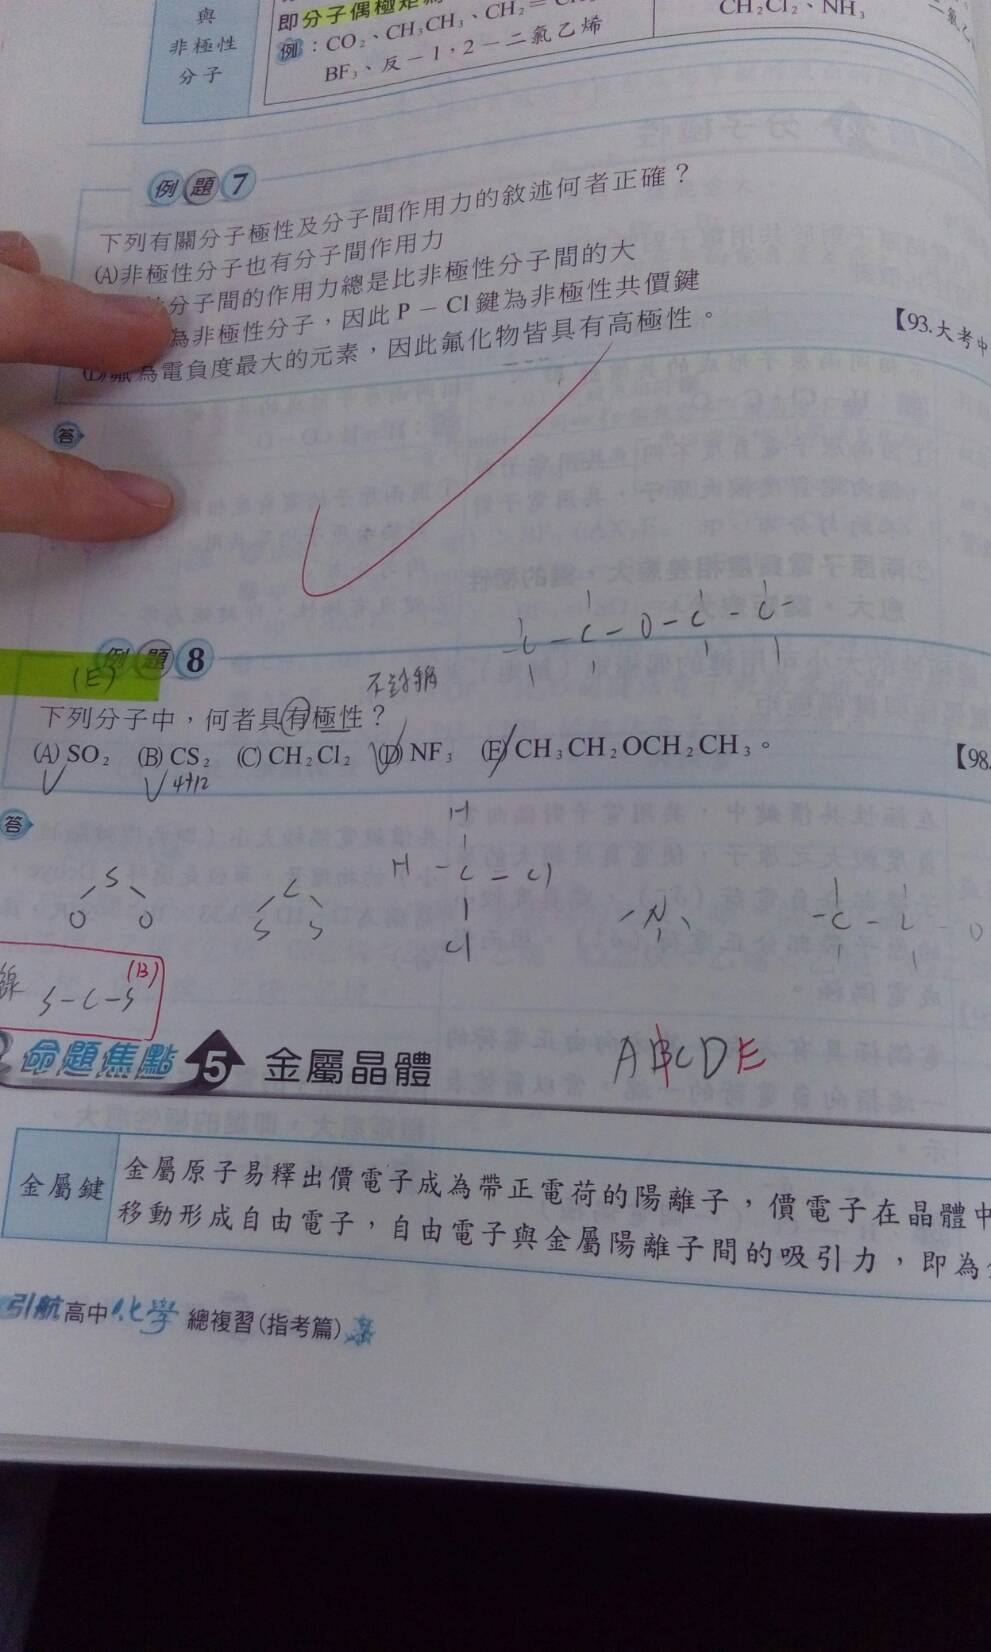 與
非極性
分子
即分子偶極矩
例：CO₂、CH₃CH₃、CH₂＝
BF₃、反－1，2－二氯乙烯
CH₂Cl₂、NH₃
例題7
下列有關分子極性及分子間作用力的敘述何者正確？
(A)非極性分子也有分子間作用力
分子間的作用力總是比非極性分子間的大
為非極性分子，因此 P－Cl 鍵為非極性共價鍵
(D)氟為電負度最大的元素，因此氟化物皆具有高極性。
【93.大考中
答
－C－C－O－C－C－
例題8
(E)
不對稱
下列分子中，何者具有極性？
(A) SO₂ (B) CS₂ (C) CH₂Cl₂ (D) NF₃ (E) CH₃CH₂OCH₂CH₃。
【98.
4+12
答
H
S
H－C－Cl
O O
C
S S
Cl
N
－C－C－O
線 S－C－S (B)
ABCDE
命題焦點 5 金屬晶體
金屬鍵
金屬原子易釋出價電子成為帶正電荷的陽離子，價電子在晶體中
移動形成自由電子，自由電子與金屬陽離子間的吸引力，即為
引航高中化學 總複習(指考篇)